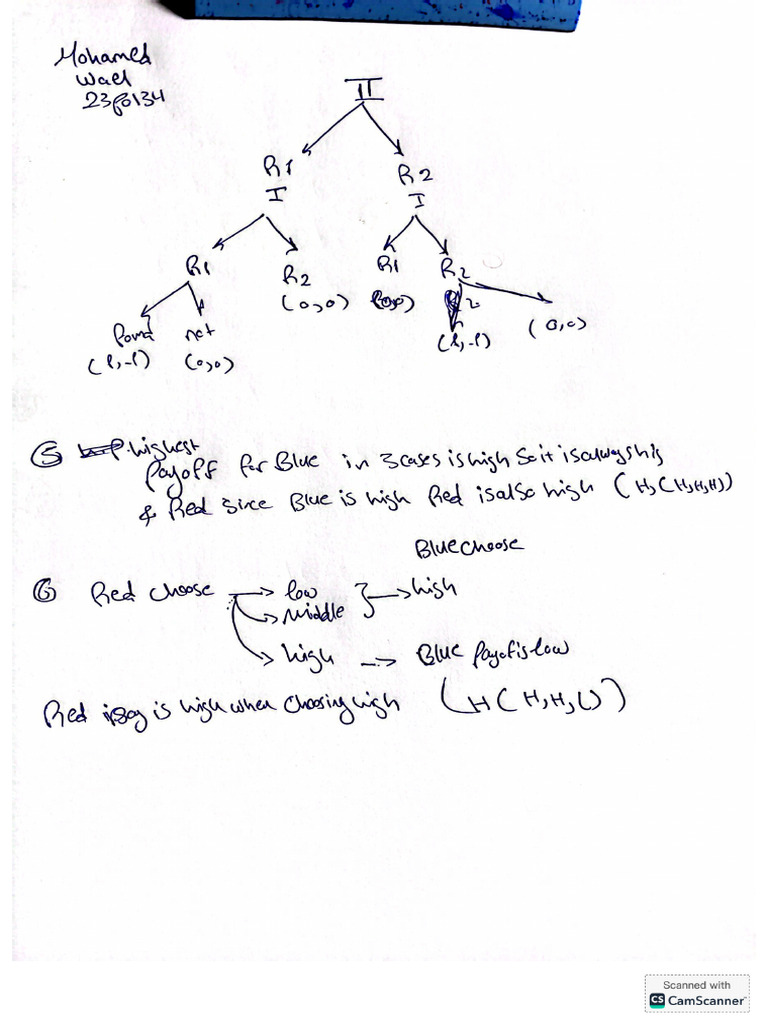 Mohamed
Wael
23P0134
II
R1 R2
I I
R1 R2 R1 R2
(0,0) (0,0)
Found not
(1,-1) (0,0) (1,-1) (0,0)
5 highest
Payoff for Blue in 3 cases is high So it is always high
& Red since Blue is high Red is also high (H,(H,H,H))
Blue choose
6 Red choose → low
→ Middle } → high
→ high → Blue Payof is low
Red is high when choosing high (H(H,H,L))
Scanned with
CS CamScanner